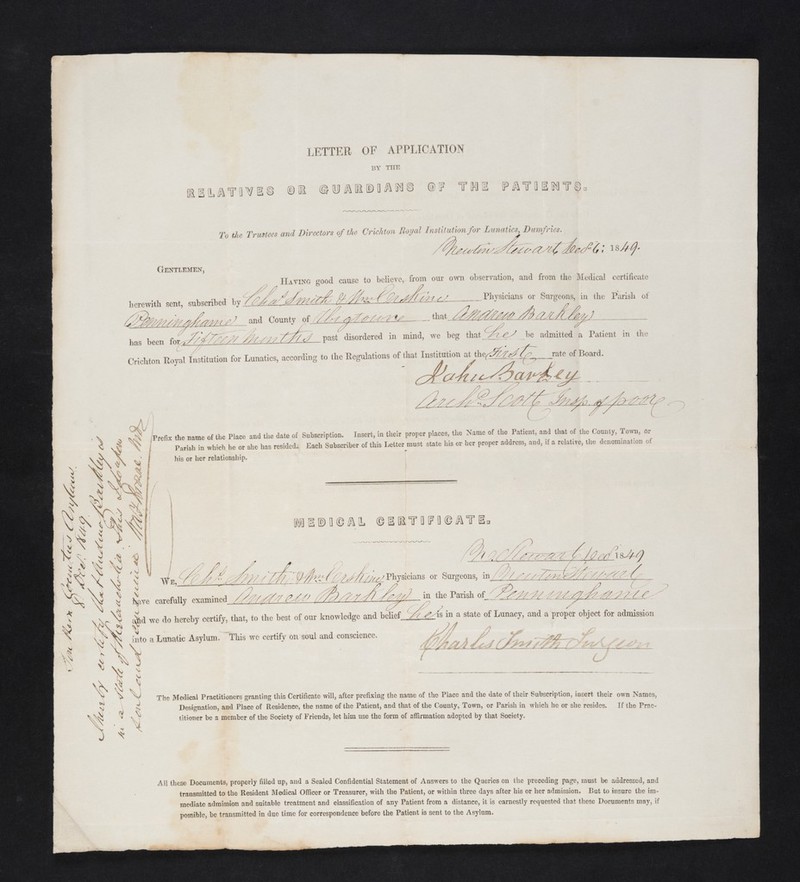 LETTER OF APPLICATION
BY THE
RELATIVES OR GUARDIANS OF THE PATIENTS.
To the Trustees and Directors of the Crichton Royal Institution for Lunatics, Dumfries.
Newton Stewart 1849.
GENTLEMEN,
HAVING good cause to believe, from our own observation, and from the Medical certificate
herewith sent, subscribed by Chas Smith & Wm Erskine Physicians or Surgeons, in the Parish of
Penninghame and County of Wigtown that Andrew Barkley
has been for Fifteen Months past disordered in mind, we beg that he be admitted a Patient in the
Crichton Royal Institution for Lunatics, according to the Regulations of that Institution at the First rate of Board.
John Barkley
Archd Scott Insp. of poor
Prefix the name of the Place and the date of Subscription. Insert, in their proper places, the Name of the Patient, and that of the County, Town, or
Parish in which he or she has resided. Each Subscriber of this Letter must state his or her proper address, and, if a relative, the denomination of
his or her relationship.
MEDICAL CERTIFICATE.
N. Stewart 1849
WE, Chs Smith & Wm Erskine Physicians or Surgeons, in Newton Stewart
have carefully examined Andrew Barkley in the Parish of Penninghame
and we do hereby certify, that, to the best of our knowledge and belief he is in a state of Lunacy, and a proper object for admission
into a Lunatic Asylum. This we certify on soul and conscience.
Charles Smith Surgeon
The Medical Practitioners granting this Certificate will, after prefixing the name of the Place and the date of their Subscription, insert their own Names,
Designation, and Place of Residence, the name of the Patient, and that of the County, Town, or Parish in which he or she resides. If the Prac-
titioner be a member of the Society of Friends, let him use the form of affirmation adopted by that Society.
All these Documents, properly filled up, and a Sealed Confidential Statement of Answers to the Queries on the preceding page, must be addressed, and
transmitted to the Resident Medical Officer or Treasurer, with the Patient, or within three days after his or her admission. But to insure the im-
mediate admission and suitable treatment and classification of any Patient from a distance, it is earnestly requested that these Documents may, if
possible, be transmitted in due time for correspondence before the Patient is sent to the Asylum.
Asylum
Decr 1849
I hereby certify that Andrew Barkley is
in a state of Melancholia. This I do upon
soul and conscience